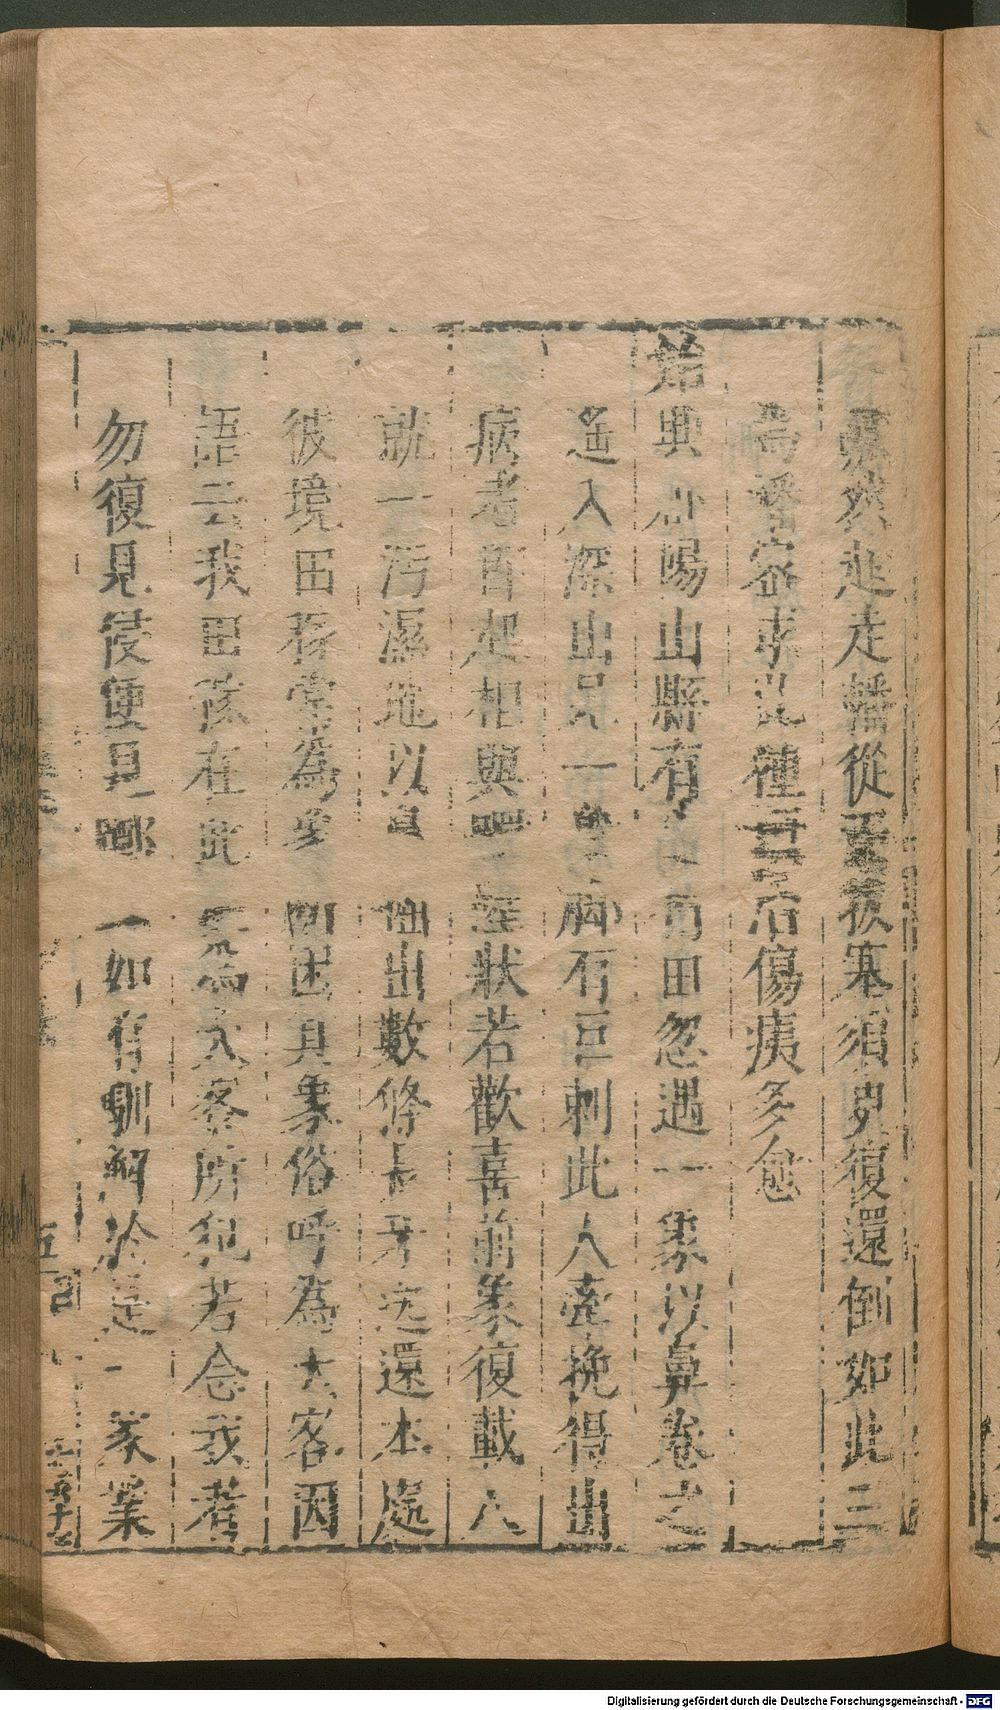 蹶然起走幡從而拔塞須臾復還倒如此三
為幡密求此種 治傷痍多愈
始興郡陽山縣有人行田忽遇一象以鼻卷之
遙入深山見一象脚有巨刺此人牽挽得出
病者即起相與 狀若歡喜前象復載人
就一污濕地以鼻掘出數條長牙送還本處
彼境田稼常為象 困其象俗呼為大客因
語云我田稼在此 為大客所犯若念我者
勿復見侵便見 一如有馴解於是一家業
Digitalisierung gefördert durch die Deutsche Forschungsgemeinschaft - DFG